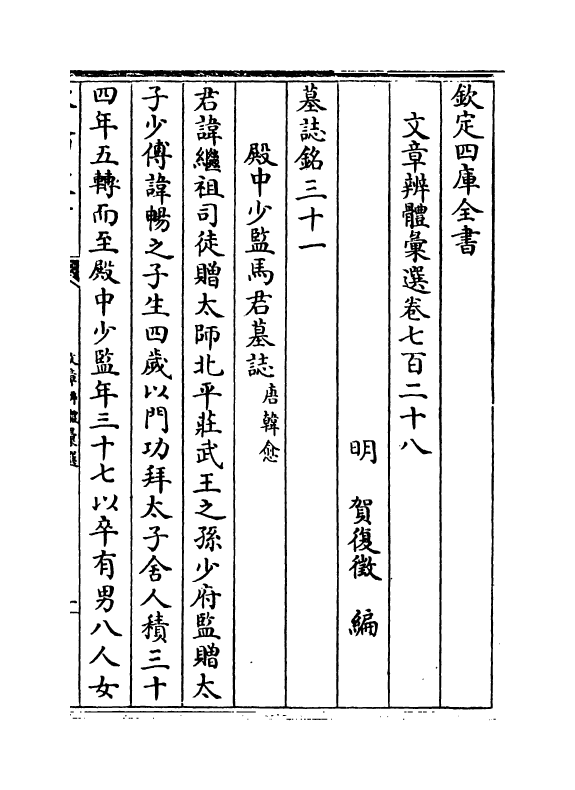 欽定四庫全書
文章辨體彙選卷七百二十八
明 賀復徵 編
墓誌銘三十一
殿中少監馬君墓誌唐韓愈
君諱繼祖司徒贈太師北平莊武王之孫少府監贈太
子少傅諱暢之子生四歲以門功拜太子舍人積三十
四年五轉而至殿中少監年三十七以卒有男八人女
文章辨體彙選